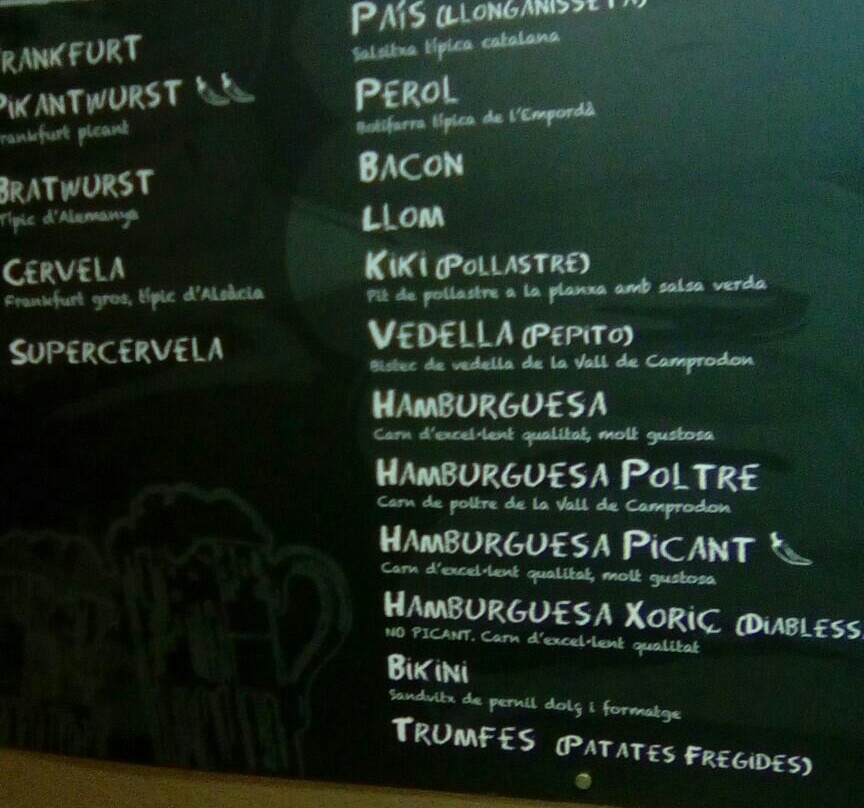 FRANKFURT
PIKANTWURST
Frankfurt picant
BRATWURST
Típic d'Alemanya
CERVELA
Frankfurt gros, típic d'Alsàcia
SUPERCERVELA
PAÍS (LLONGANISSETA)
Salsitxa típica catalana
PEROL
Botifarra típica de l'Empordà
BACON
LLOM
KIKI (POLLASTRE)
Pit de pollastre a la planxa amb salsa verda
VEDELLA (PEPITO)
Bistec de vedella de la Vall de Camprodon
HAMBURGUESA
Carn d'excel·lent qualitat, molt gustosa
HAMBURGUESA POLTRE
Carn de poltre de la Vall de Camprodon
HAMBURGUESA PICANT
Carn d'excel·lent qualitat, molt gustosa
HAMBURGUESA XORIÇ (DIABLESS
NO PICANT. Carn d'excel·lent qualitat
BIKINI
Sandvitx de pernil dolç i formatge
TRUMFES (PATATES FREGIDES)